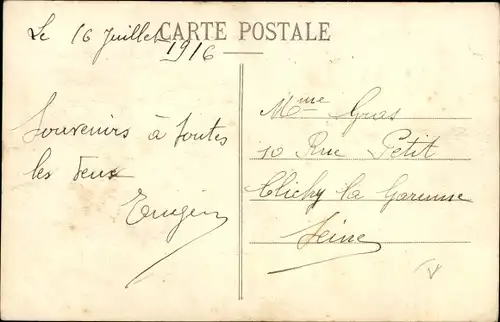 CARTE POSTALE
Le 16 Juillet 1916
Souvenirs à toutes
les deux
Eugène
Mme Gras
10 Rue Petit
Clichy la Garenne
Seine